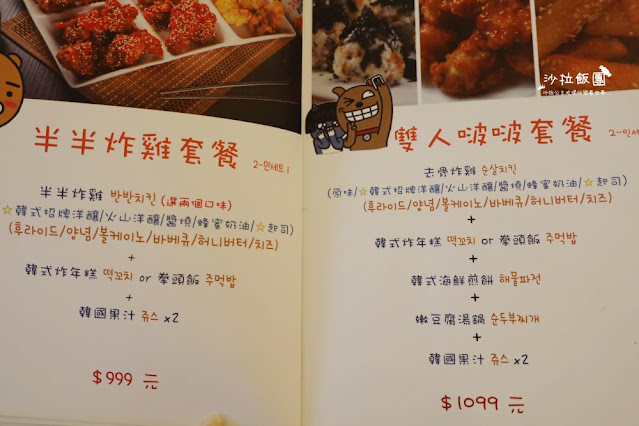 半半炸雞套餐
2-인세트1
半半炸雞 반반치킨 (選兩個口味)
(☆韓式招牌洋釀/火山洋釀/醬燒/蜂蜜奶油/☆起司)
(후라이드/양념/볼케이노/바베큐/허니버터/치즈)
+
韓式炸年糕 떡꼬치 or 拳頭飯 주먹밥
+
韓國果汁 쥬스 x2
$999 元
沙拉飯團
雙人啵啵套餐
2-인세
去骨炸雞 순살치킨
(原味/☆韓式招牌洋釀/火山洋釀/醬燒/蜂蜜奶油/☆起司)
(후라이드/양념/볼케이노/바베큐/허니버터/치즈)
+
韓式炸年糕 떡꼬치 or 拳頭飯 주먹밥
+
韓式海鮮煎餅 해물파전
+
嫩豆腐湯鍋 순두부찌개
+
韓國果汁 쥬스 x2
$1099 元